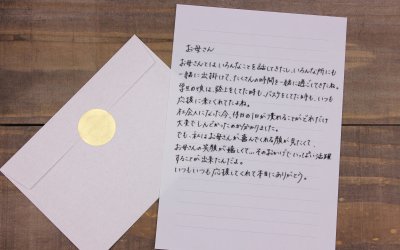 お母さん
お母さんとは、いろんなことを話してきたし、いろんな所にも
一緒に出掛けて、たくさんの時間を一緒に過ごしてきたね。
学生の頃は、陸上をしてた時も、バスケをしてた時も、いつも
応援に来てくれてたよね。
社会人になった今、休日の1日が潰れることがどれだけ
大変でしんどかったのか分かりました。
でも、私はお母さんが喜んでくれる顔が見たくて、
お母さんの笑顔が嬉しくて…そのおかげでいっぱい活躍
することが出来たんだよ。
いつもいつも応援してくれて本当にありがとう。